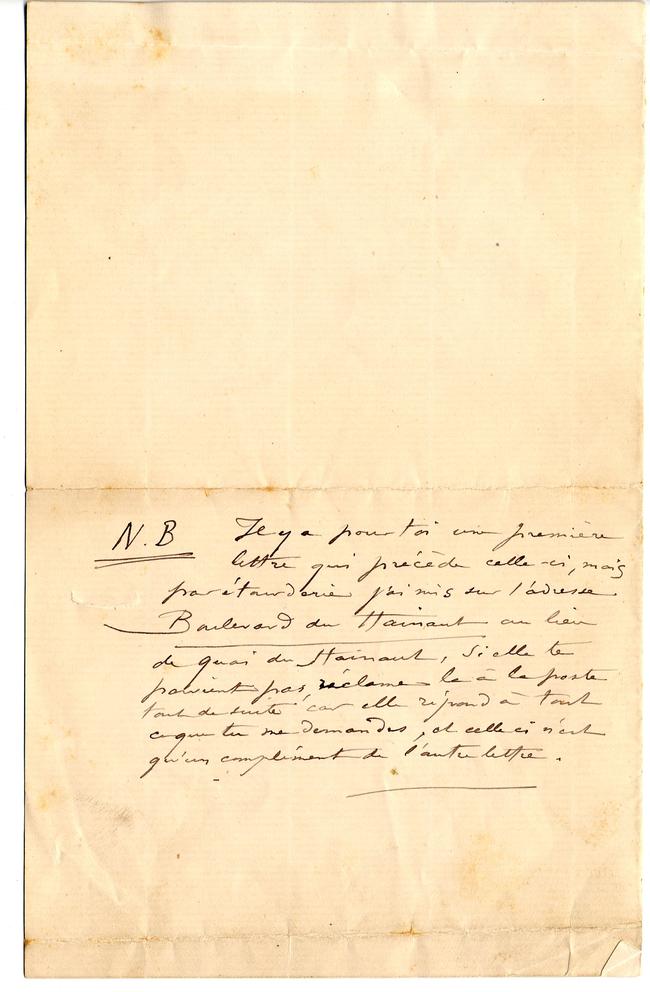 N.B Il y a pour toi une première
lettre qui précède celle-ci, mais
par étourderie j'ai mis sur l'adresse
Boulevard du Hainaut au lieu
de quai du Hainaut, si elle te
parvient pas, réclame la à la poste
tout de suite car elle répond à tout
ce que tu me demandes, et celle ci n'est
qu'un complément de l'autre lettre.